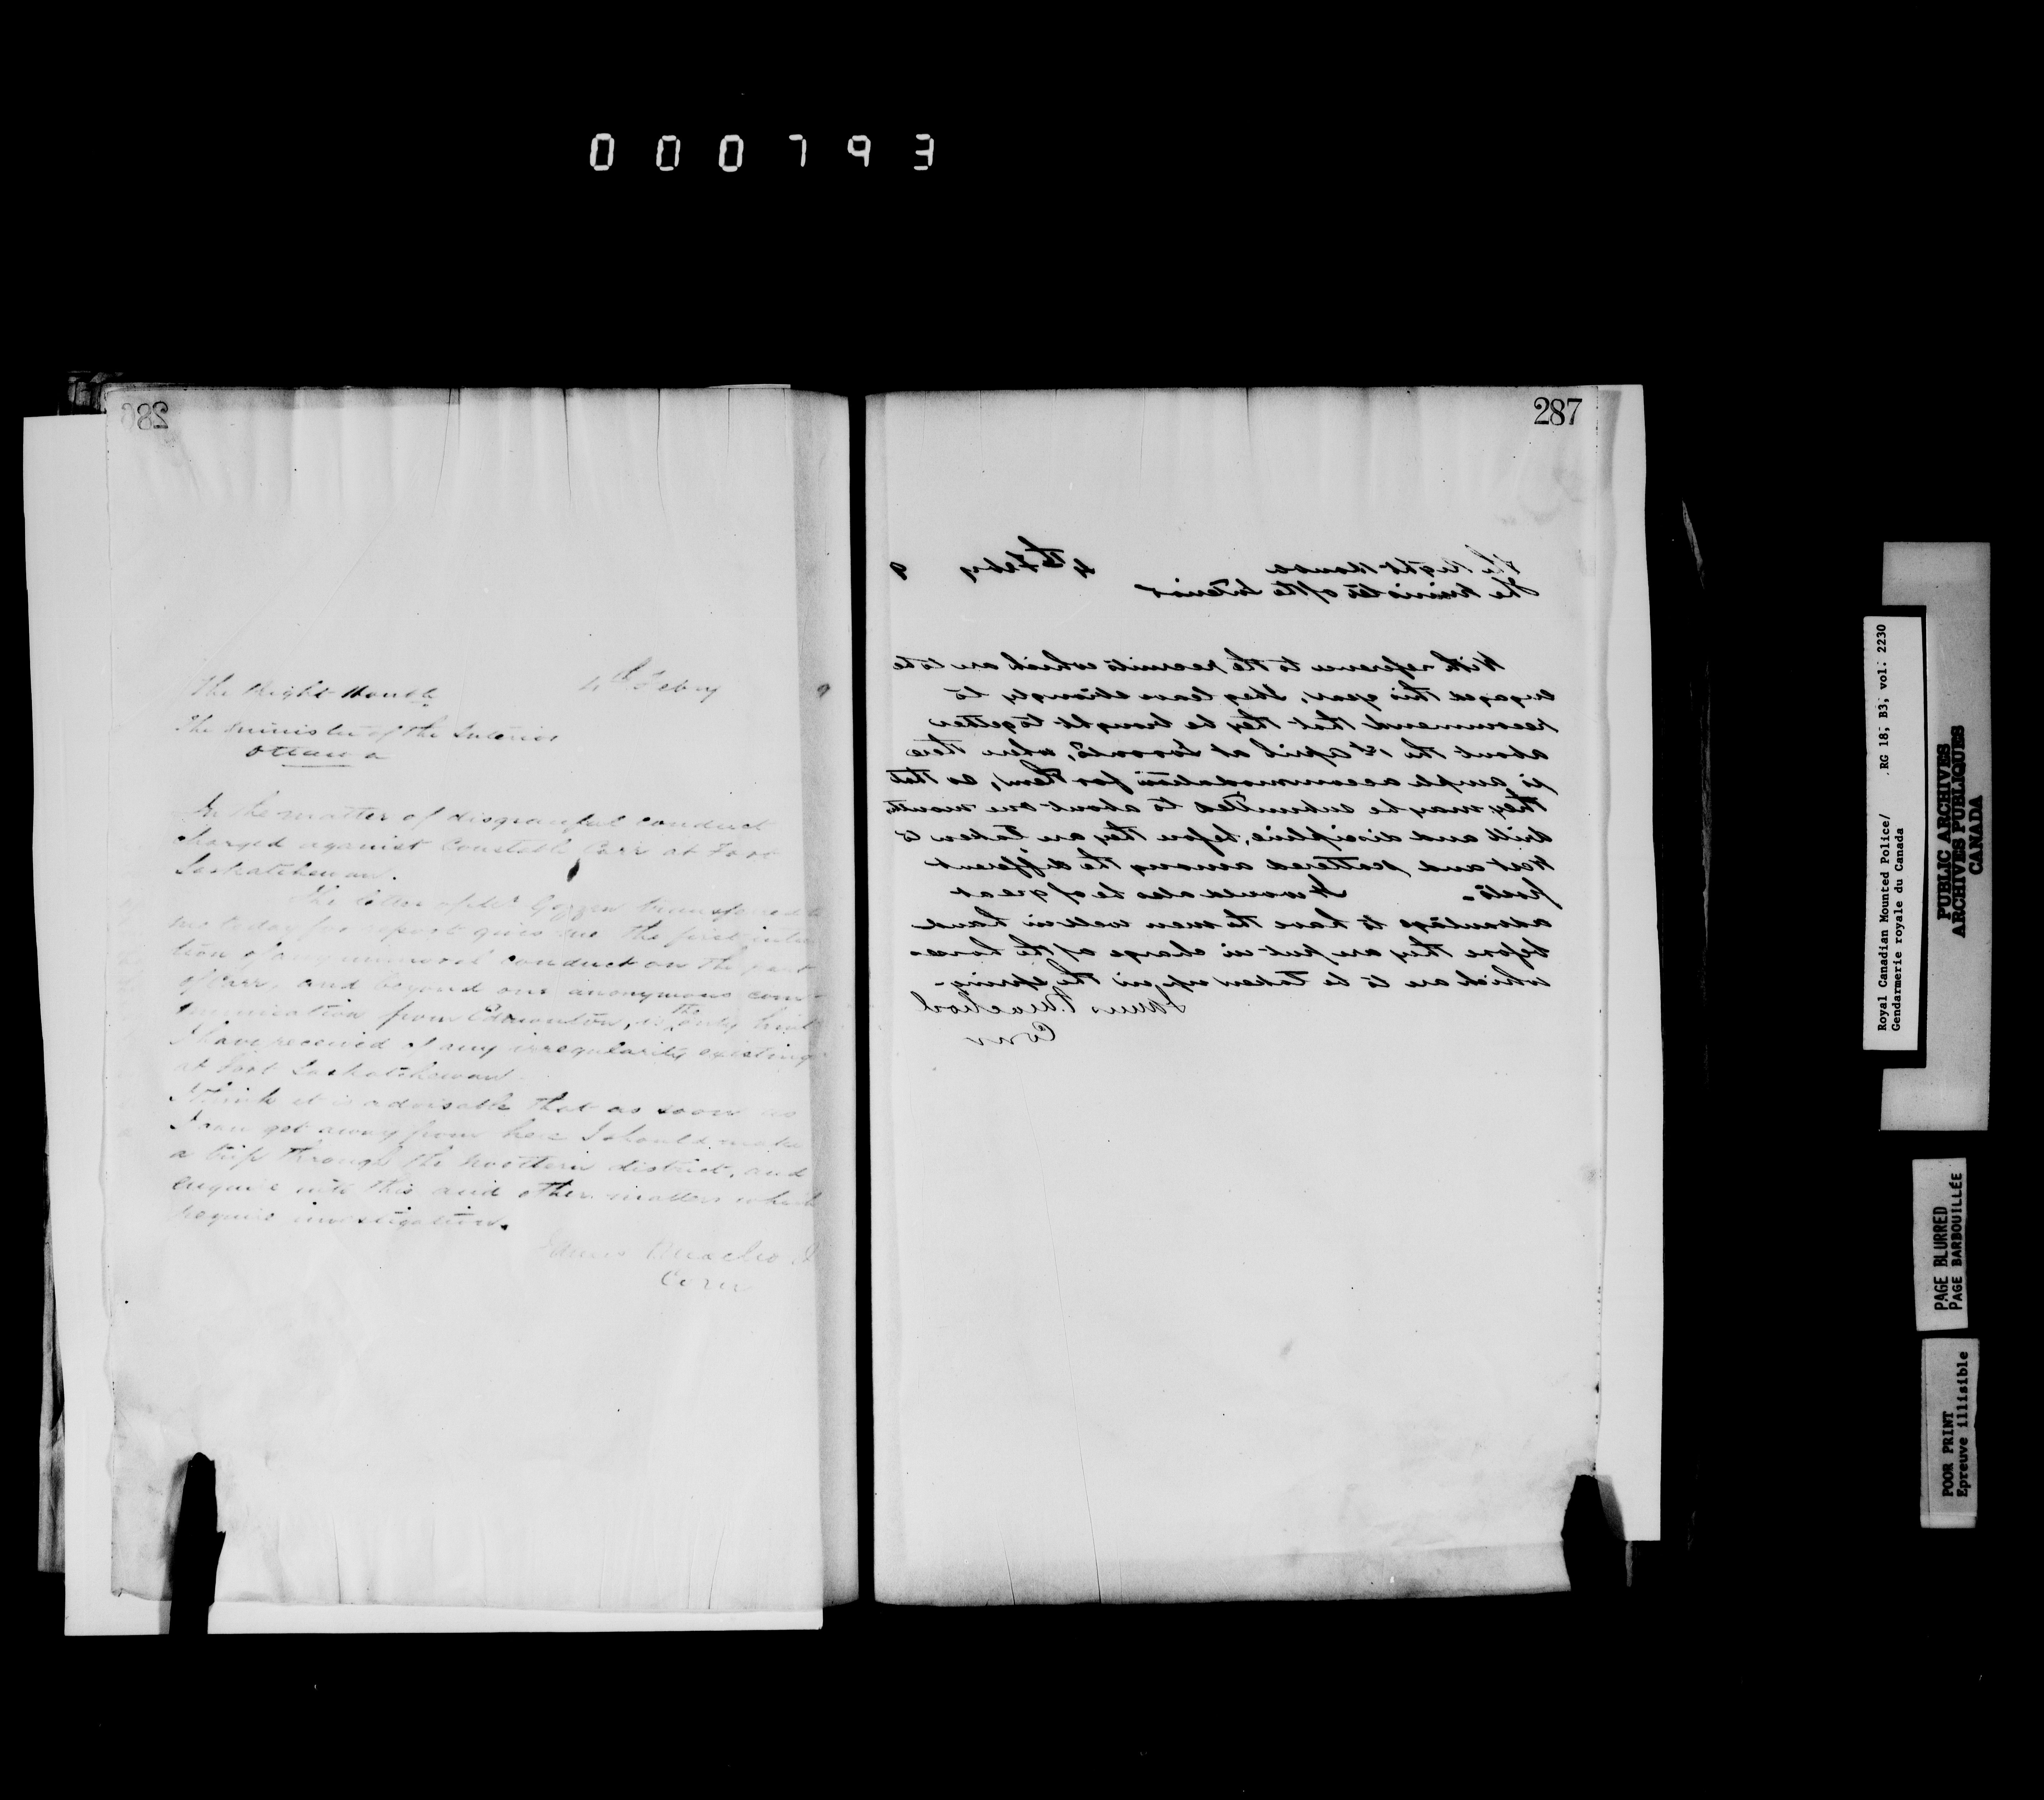 000793
286
The Right Honble 4th Feby 9
The Minister of the Interior
Ottawa
In the matter of disgraceful conduct
charged against Constable Carr at Fort
Saskatchewan.
The letter of Mr transferred to
me today for report gives me the first
tion of any immoral conduct on the part
of Carr, and beyond one anonymous com-
munication from Edmonton, is the only hint
I have received of any irregularity existing
at Fort Saskatchewan.
I think it is advisable that as soon as
I can get away from here I should make
a trip through the northern district, and
enquire into this and other matters which
require investigation.
James Macleod
Com
287
The Right Honble 4th Feby 9
The Minister of the Interior
With reference to the recruits which are to be
engaged this year, I beg leave strongly to
recommend that they be brought together
about the 1st April at Toronto, where there
is ample accommodation for them, so that
they may be submitted to about one month
drill and discipline, before they are taken to
and scattered among the different
posts. It would also be of great
advantage to have the men well in hand
before they are put in charge of the horses
which are to be taken up in the spring.
James F. Macleod
Com
Royal Canadian Mounted Police/ RG 18; B3; vol. 2230
Gendarmerie royale du Canada
PUBLIC ARCHIVES
ARCHIVES PUBLIQUES
CANADA
PAGE BLURRED
PAGE BARBOUILLÉE
POOR PRINT
Epreuve illisible